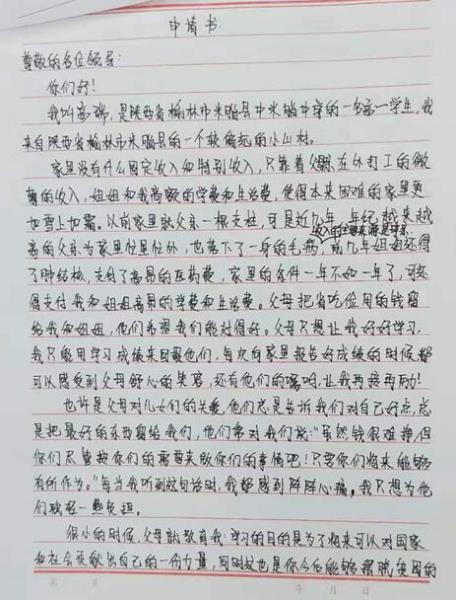 申请书
尊敬的各位领导:
你们好!
我叫高瑞,是陕西省榆林市米脂县中米脂中学的一名高一学生,我
来自陕西省榆林市米脂县的一个较偏远的小山村。
家里没有什么固定收入和特别收入,只靠着父亲在外打工的微
薄的收入,姐姐和我高额的学费和生活费,使得本来困难的家里更
加雪上加霜。以前家里就父亲一根支柱,可是近几年,年纪越来越
收入的主要来源是父亲
高的父亲为家里忙里忙外,也落下了一身的毛病,前几年姐姐还得
了肺结核,支付了高昂的医药费,家里的条件一年不如一年了,可还
得支付我和姐姐高昂的学费和生活费。父母把省吃俭用的钱留
给我和姐姐,他们希望我们能过得好。父母只想让我好好学习,
我只能用学习成绩来回报他们,每次向家里报告好成绩的时候,都
可以感受到父母舒心的笑容,还有他们的嘱咐,让我再接再励!
也许是父母对儿女们的关爱,他们总是告诉我们对自己好点,总
是把最好的东西留给我们,他们常对我们说:"虽然钱很难挣,但
你们尽管按你们的需要来做你们的事情吧!只要你们将来能够
有所作为。"每当我听到这句话时,我都感到阵阵心痛。我只想为他
们减轻一些负担。
很小的时候,父母就教育我学习的目的是为了将来可以对国家
和社会贡献出自己的一份力量,同时这也是你今后能够摆脱贫困的
第 页 年 月 日